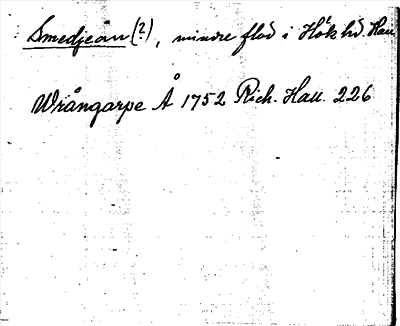 Smedjeån (?), mindre flod i Höks hd. Hall
Wrångarpe Å 1752 Rich. Hall. 226